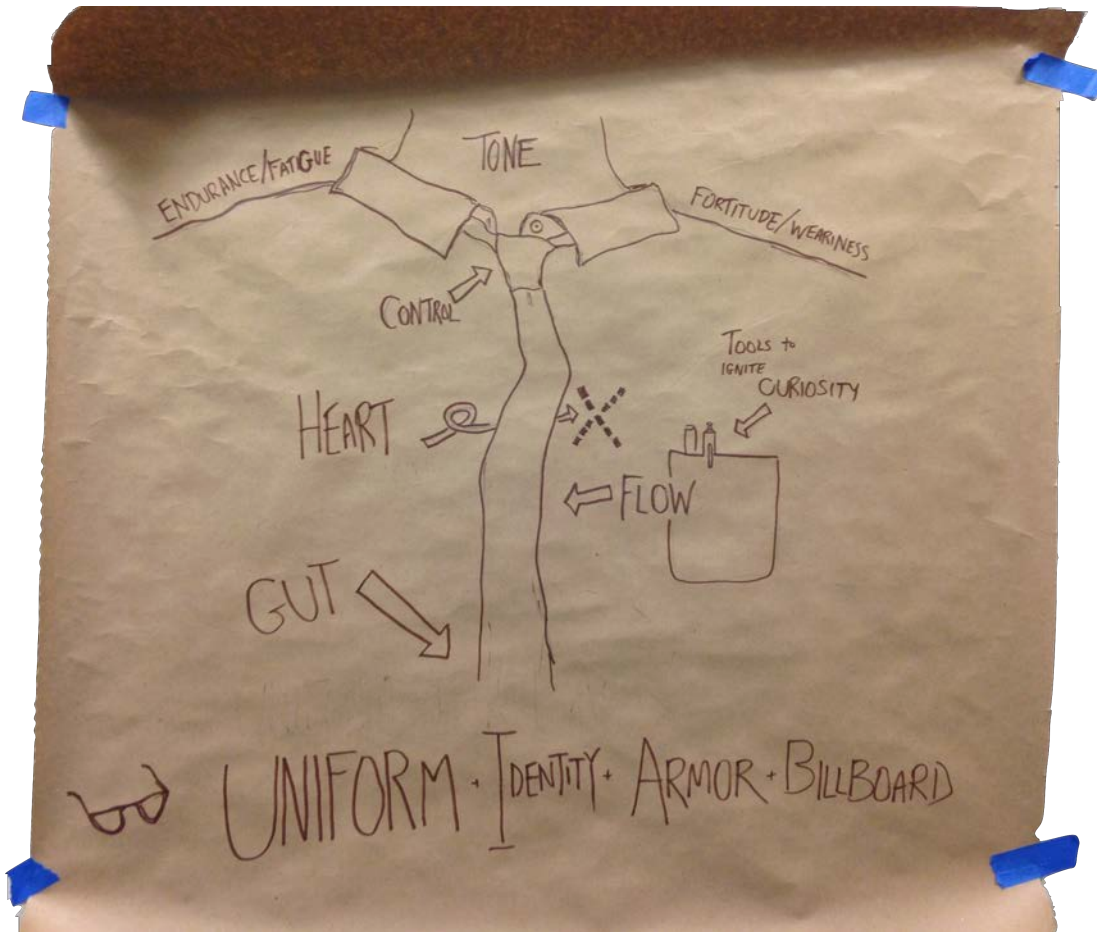 TONE
ENDURANCE/FATIGUE
FORTITUDE/WEARINESS
CONTROL
TOOLS to
IGNITE
CURIOSITY
HEART
FLOW
GUT
UNIFORM + IDENTITY + ARMOR + BILLBOARD